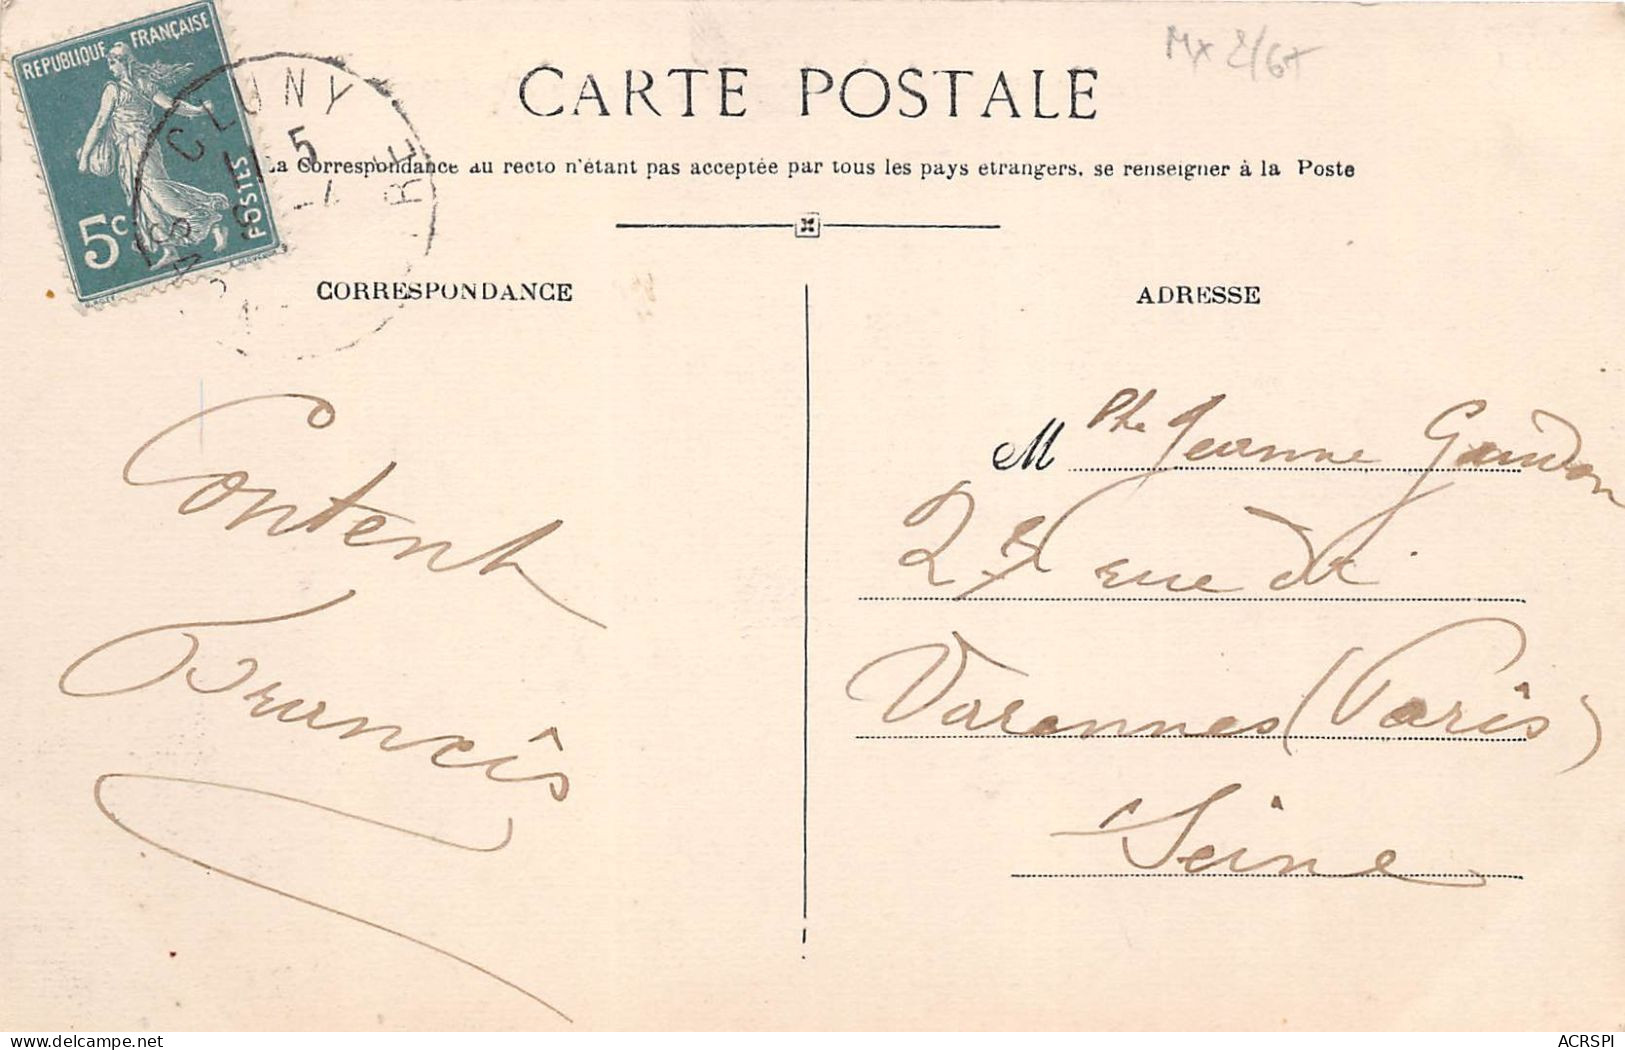 REPUBLIQUE FRANÇAISE
5c
POSTES
CLUNY
5
Mx 2/67
CARTE POSTALE
La Correspondance au recto n'étant pas acceptée par tous les pays etrangers, se renseigner à la Poste
CORRESPONDANCE
Content
Francis
ADRESSE
M lle Jeanne Gandon
23 rue de
Varennes (Paris)
Seine
ACRSPI